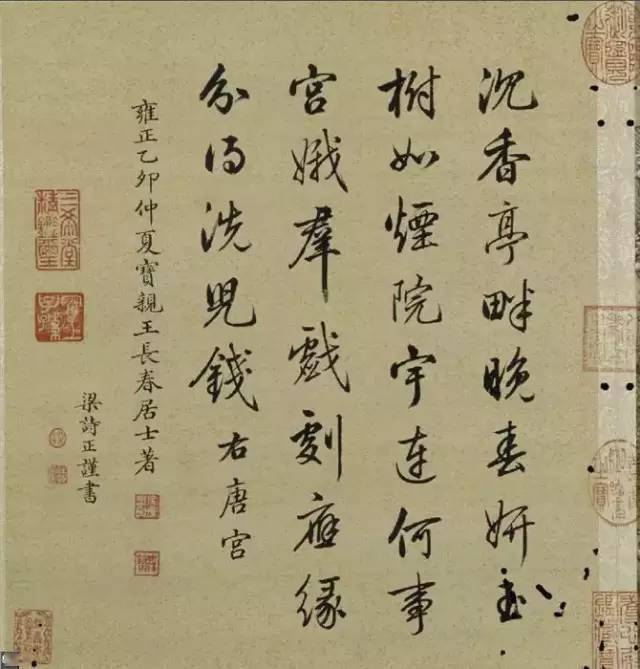 沉香亭畔晚春妍玉
樹如煙院宇連何事
宮娥羣戲劇應緣
分得洗兒錢右唐宮
雍正乙卯仲夏寶親王長春居士著
梁詩正謹書
三希堂精鑑璽
宜子孫